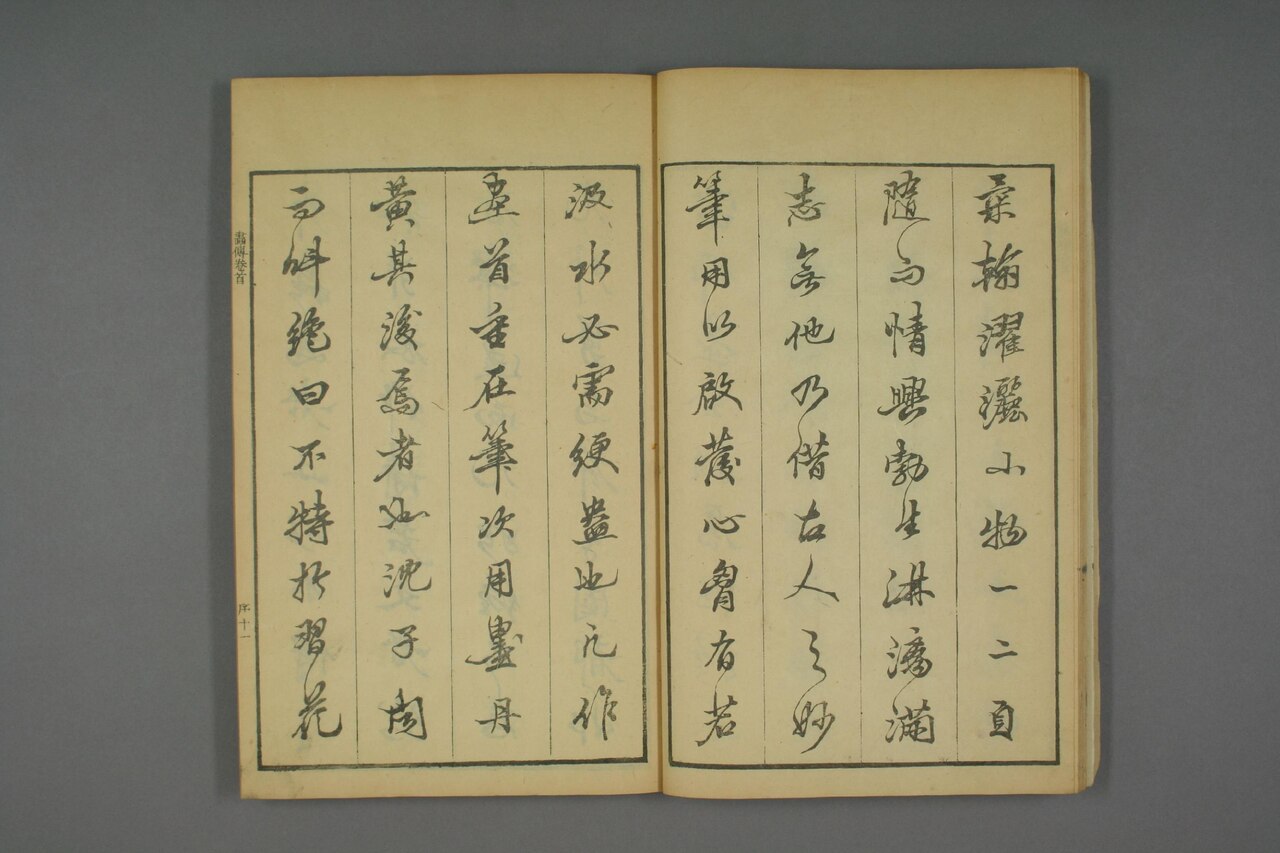 弄翰濯灑小物一二頁
隨而情興勃生淋漓滿
志無他乃借古人之妙
筆用以啟發心胷有若
汲水必需綆盎也凡作
畫首重在筆次用墨丹
黃其後焉者如沈子周
而斟絶曰不特於習花
畫傳卷首
序十一